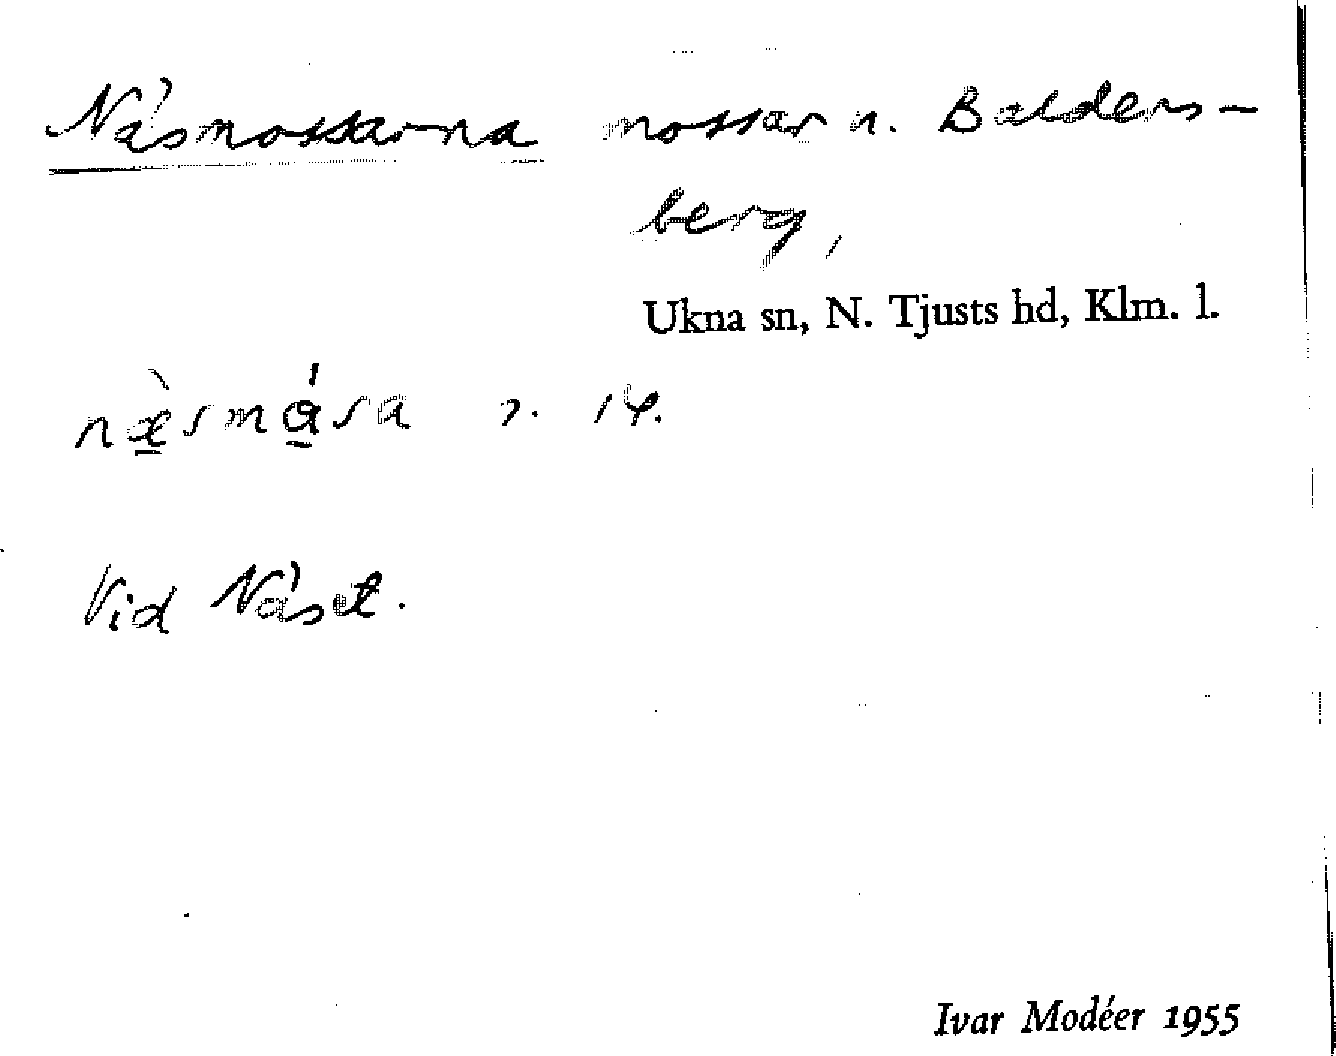 Näsmossarna mossar n. Balders-
berg,
Ukna sn, N. Tjusts hd, Klm. l.
næ̠̀smɑ̠́sa 2. 14.
Vid Näset.
Ivar Modéer 1955